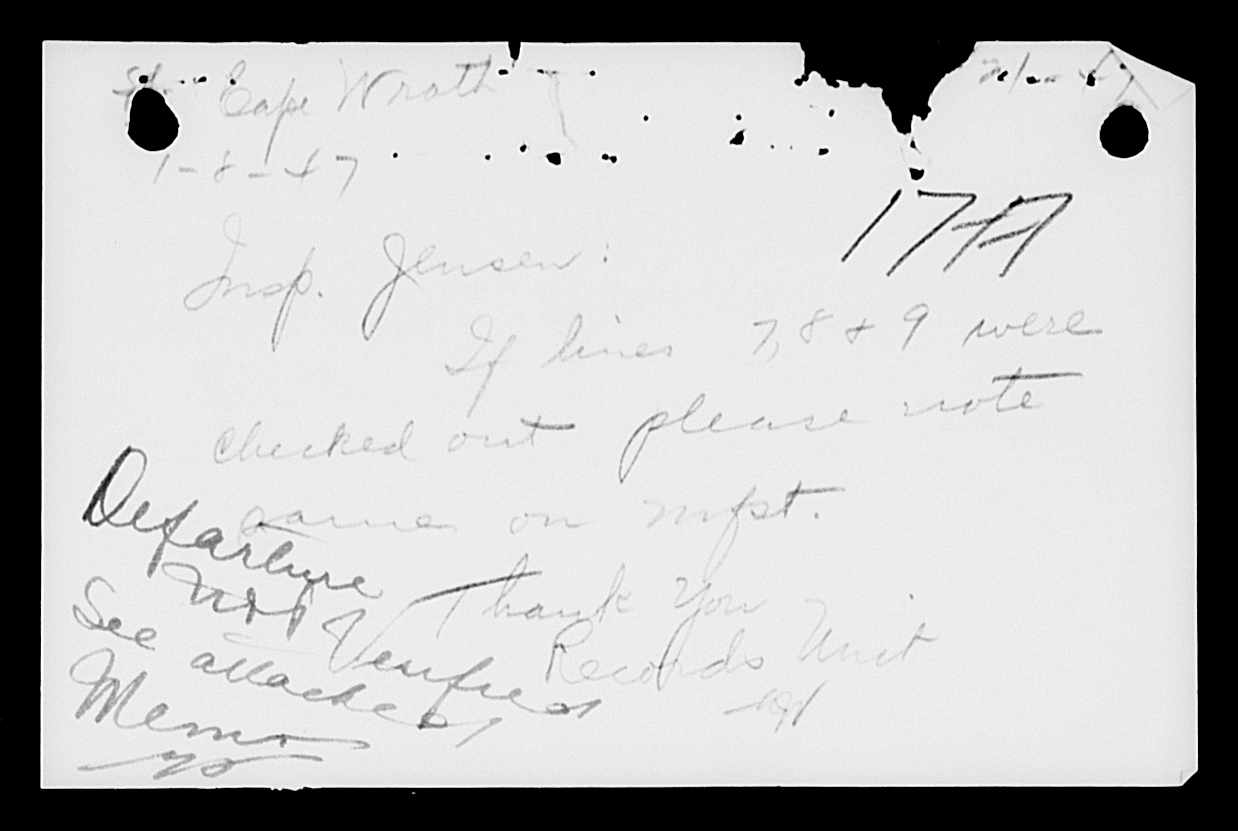 Cape Wrath
1-8-47
Insp. Jensen:
If lines 7, 8 & 9 were
checked out please note
same on mfst.
Thank You
Records Unit
Departure
not Verified
See attached
Memo